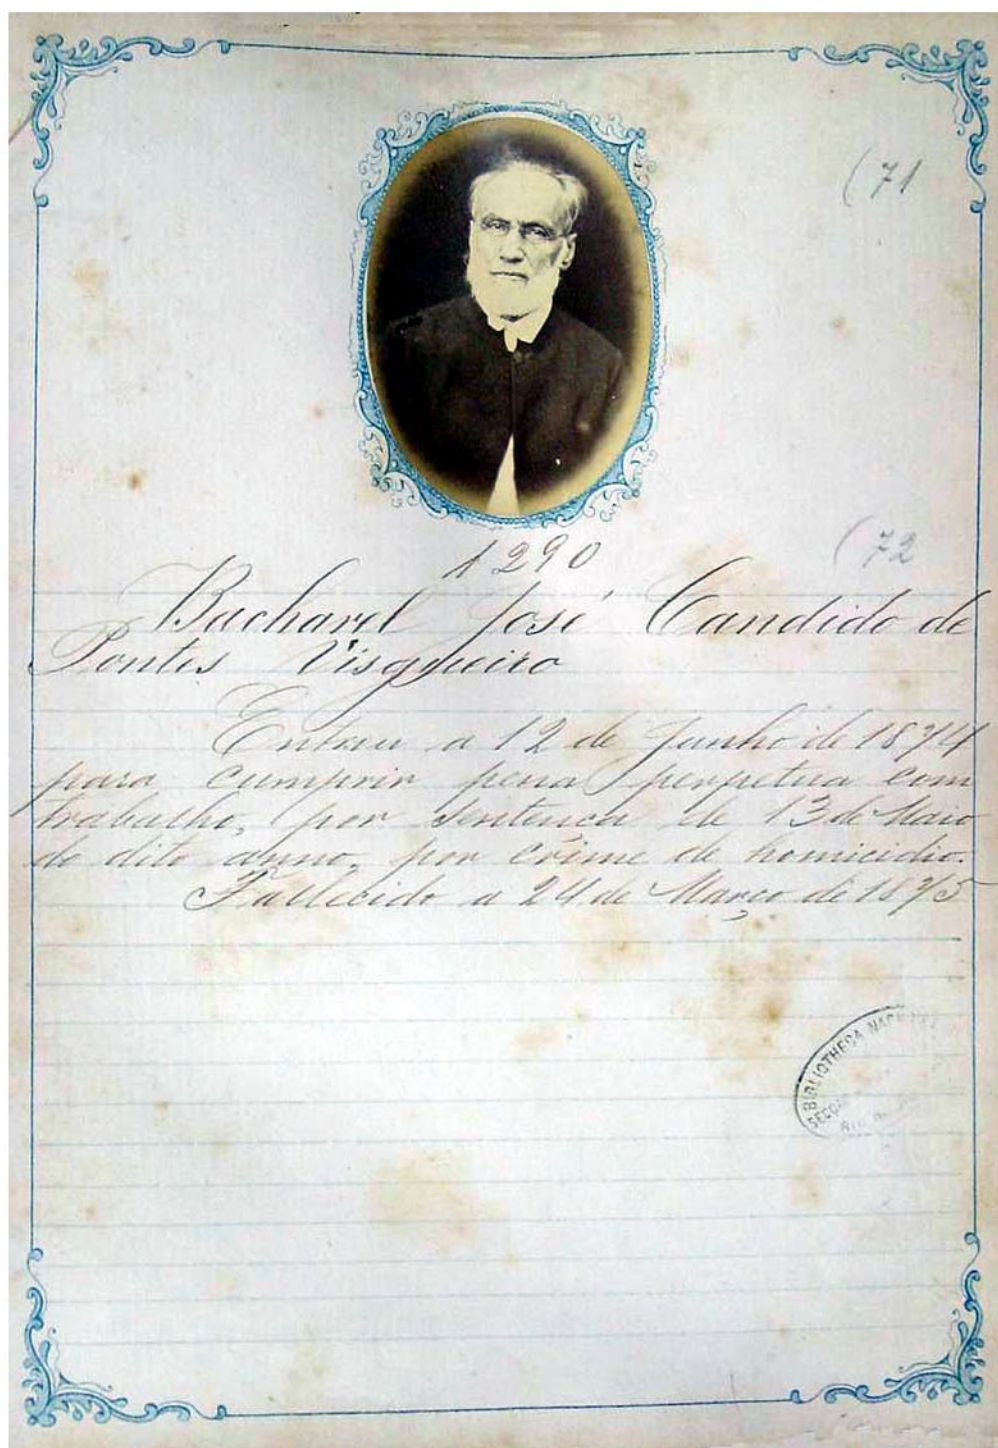 (71
(72
1290
Bacharel José Candido de
Pontes Visgueiro
Entrou a 12 de Junho de 1874
para cumprir pena perpetua com
trabalho, por sentença de 13 de Maio
do dito anno, por crime de homicidio.
Fallecido a 24 de Março de 1875
BIBLIOTHECA
SECÇÃO